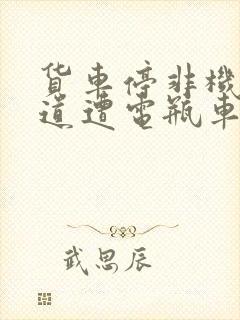 货車停非機
道遭電瓶車
武思辰